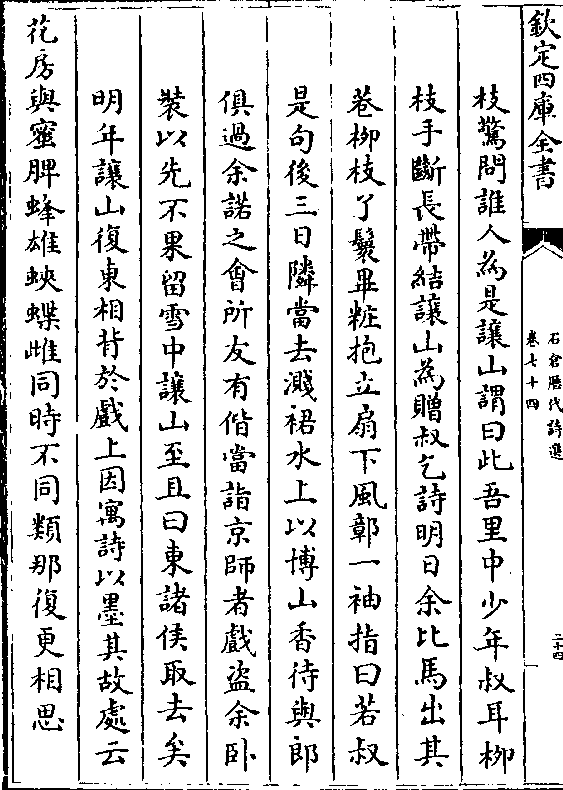 欽定四庫全書
石倉歴代詩選
卷七十四
二十四
枝驚問誰人為是讓山謂曰此吾里中少年叔耳柳
枝手斷長帶結讓山為贈叔乞詩明日余比馬出其
巷柳枝了鬟畢粧抱立扇下風鄣一袖指曰若叔
是句後三日隣當去濺裙水上以博山香待與郎
俱過余諾之會所友有偕當詣京師者戲盜余卧
裝以先不果留雪中讓山至且曰東諸侯取去矣
明年讓山復東相背於戲上因寓詩以墨其故處云
花房與蜜脾蜂雄蛺蝶雌同時不同類那復更相思